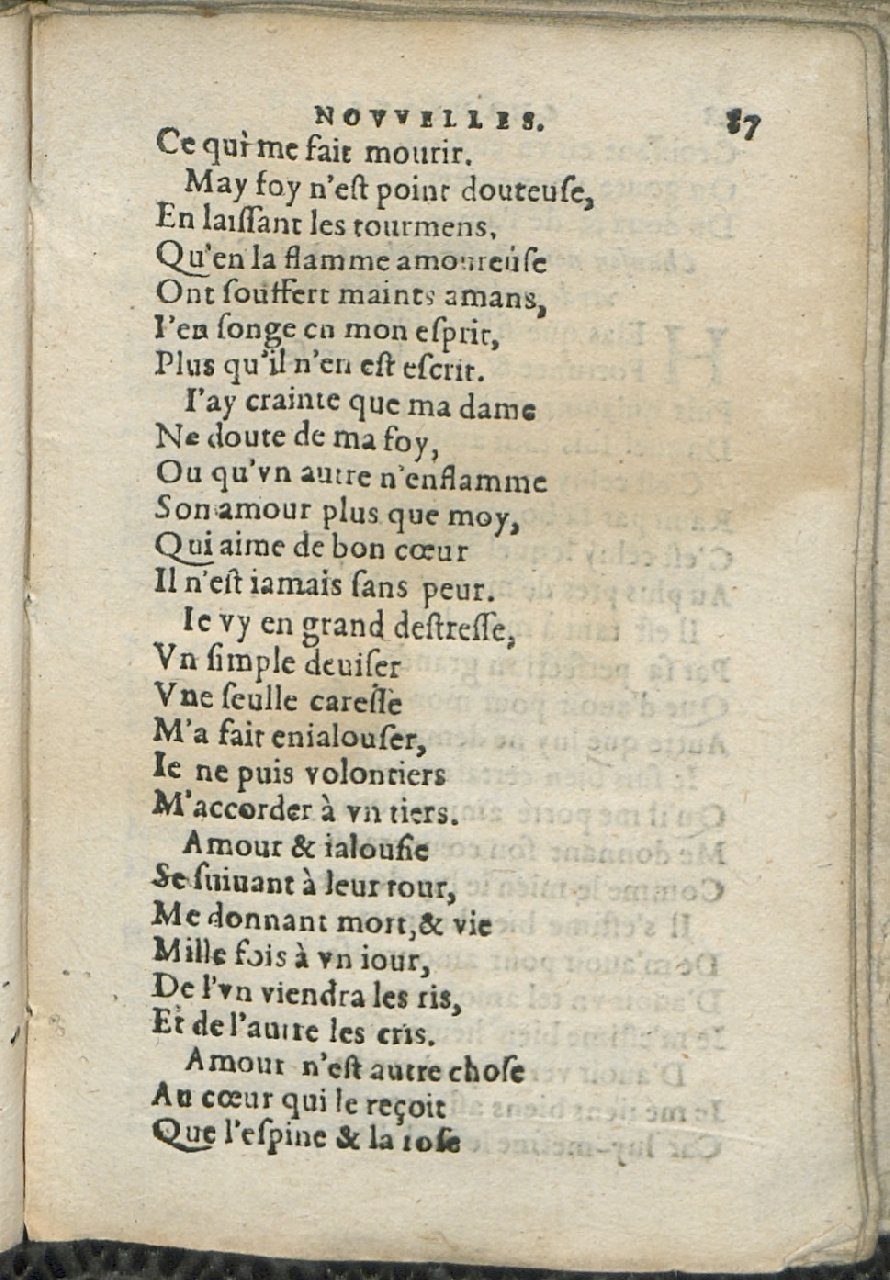 NOVVELLES. 87
Ce qui me fait mourir.
May foy n'eſt point douteuſe,
En laiſſant les tourmens,
Qu'en la flamme amoureuſe
Ont ſouffert maints amans,
I'en ſonge en mon eſprit,
Plus qu'il n'en eſt eſcrit.
I'ay crainte que ma dame
Ne doute de ma foy,
Ou qu'vn autre n'enflamme
Son amour plus que moy,
Qui aime de bon cœur
Il n'eſt iamais ſans peur.
Ie vy en grand deſtreſſe,
Vn ſimple deuiſer
Vne ſeulle careſſe
M'a fait enialouſer,
Ie ne puis volontiers
M'accorder à vn tiers.
Amour & ialouſie
Se ſuiuant à leur tour,
Me donnant mort, & vie
Mille fois à vn iour,
De l'vn viendra les ris,
Et de l'autre les cris.
Amour n'eſt autre choſe
Au cœur qui le reçoit
Que l'eſpine & la roſe